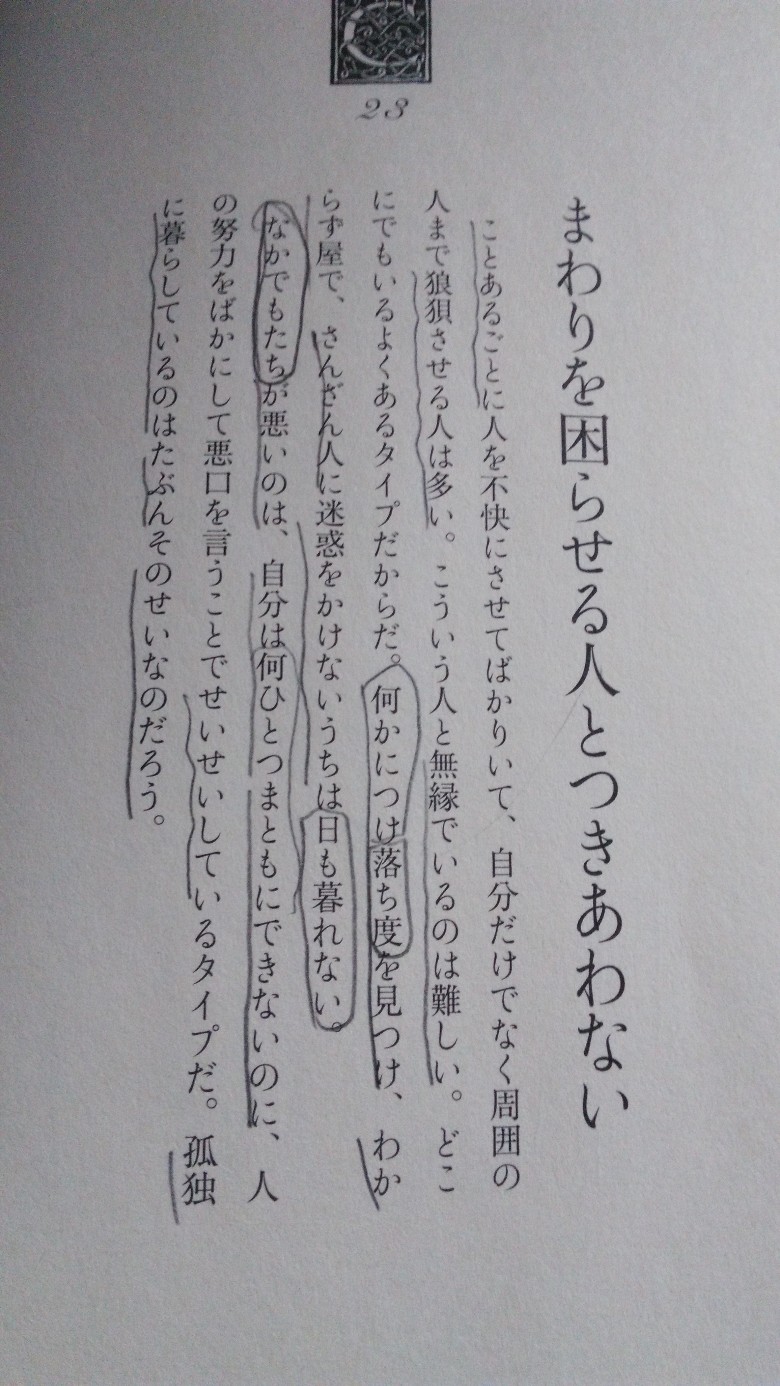 23
まわりを困らせる人とつきあわない
ことあるごとに人を不快にさせてばかりいて、自分だけでなく周囲の
人まで狼狽させる人は多い。こういう人と無縁でいるのは難しい。どこ
にでもいるよくあるタイプだからだ。何かにつけ落ち度を見つけ、わか
らず屋で、さんざん人に迷惑をかけないうちは日も暮れない。
なかでもたちが悪いのは、自分は何ひとつまともにできないのに、人
の努力をばかにして悪口を言うことでせいせいしているタイプだ。孤独
に暮らしているのはたぶんそのせいなのだろう。